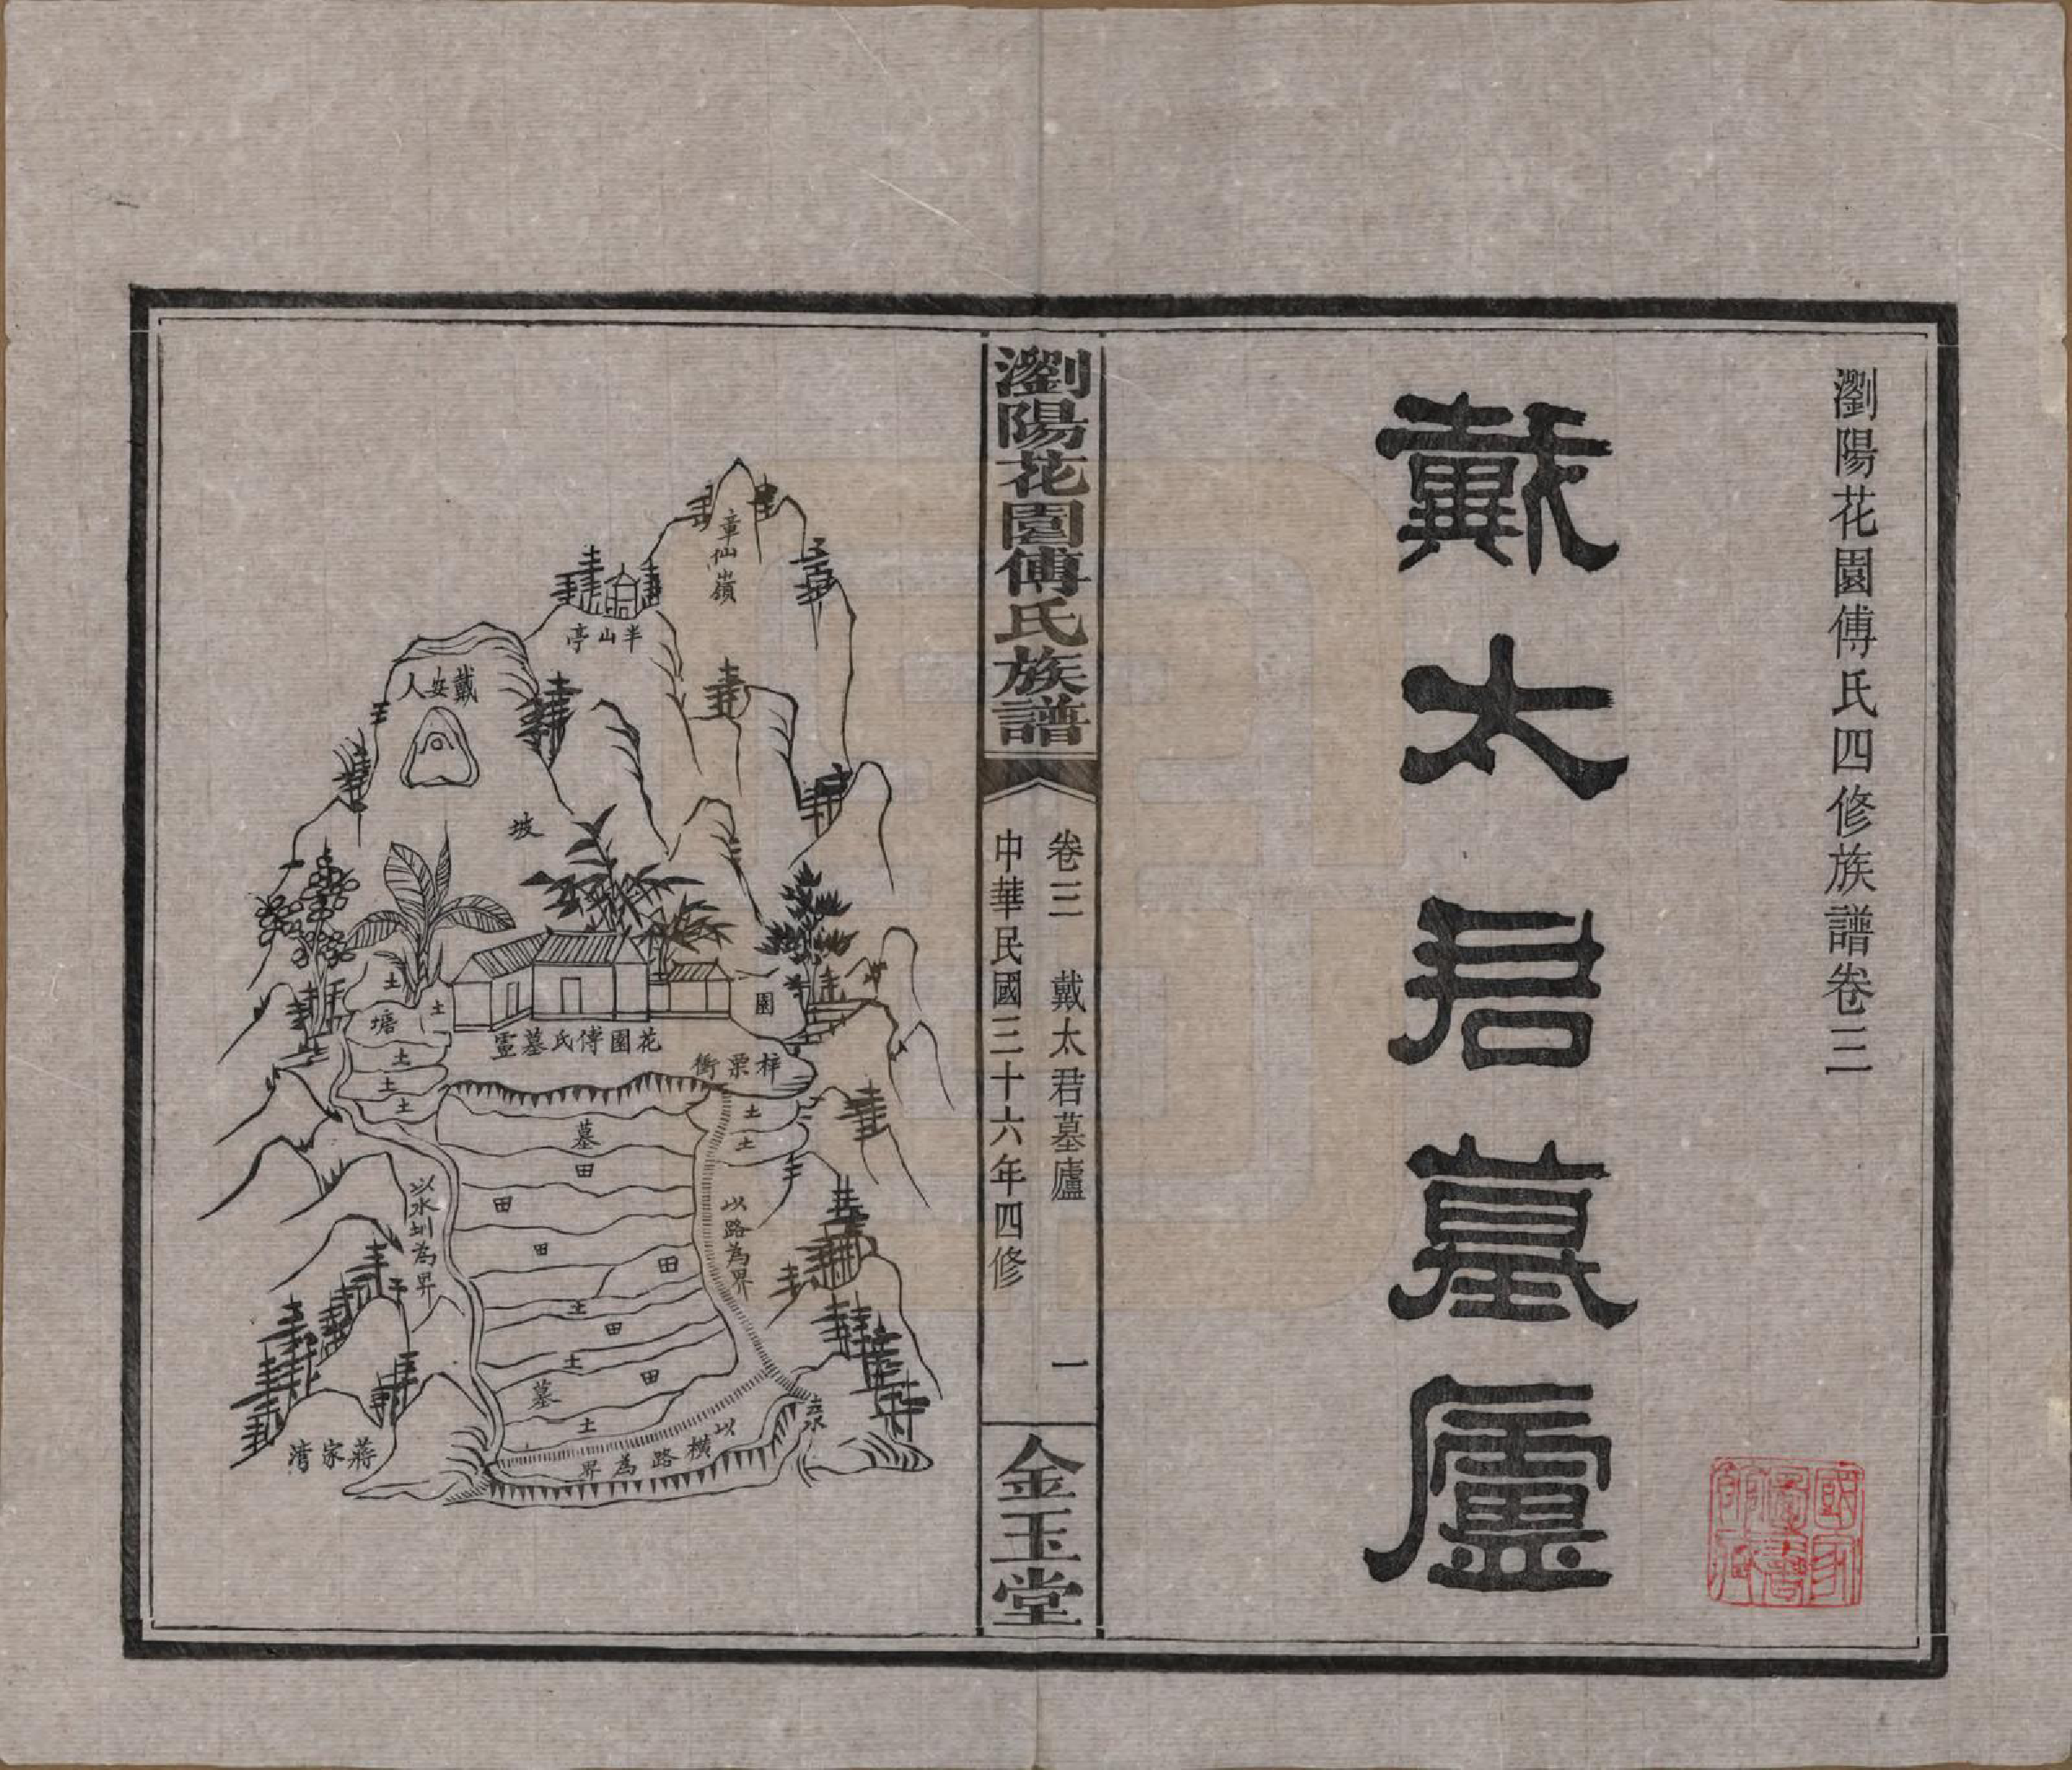 瀏陽花園傅氏四修族譜卷三
戴太君墓廬
國家圖書館藏
瀏陽花園傅氏族譜
卷三 戴太君墓廬 一
中華民國三十六年四修
金玉堂
章仙嶺
半山亭
戴安人
坡
土
塘
土
園
花園傅氏墓廬
梓栗衝
土
土
土
土
土
墓
田
田
田
田
土
田
土
田
墓
土
以水圳為界
以路為界
以橫路為界
蔣家灣